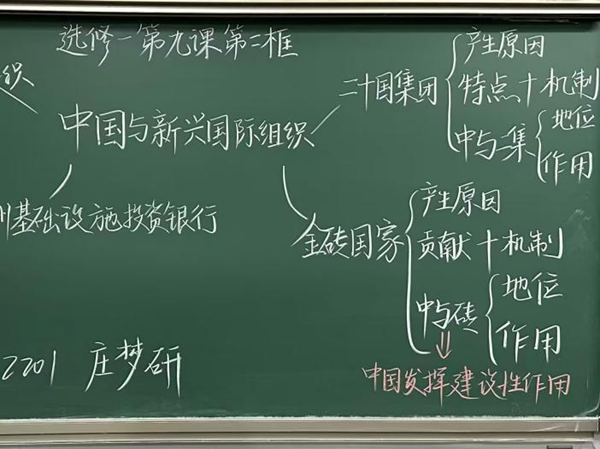 选修一第九课第二框
织
中国与新兴国际组织
二十国集团
产生原因
特点+机制
中与二集
地位
作用
基础设施投资银行
金砖国家
产生原因
贡献+机制
中与砖
地位
作用
⇓
中国发挥建设性作用
2201 庄梦研